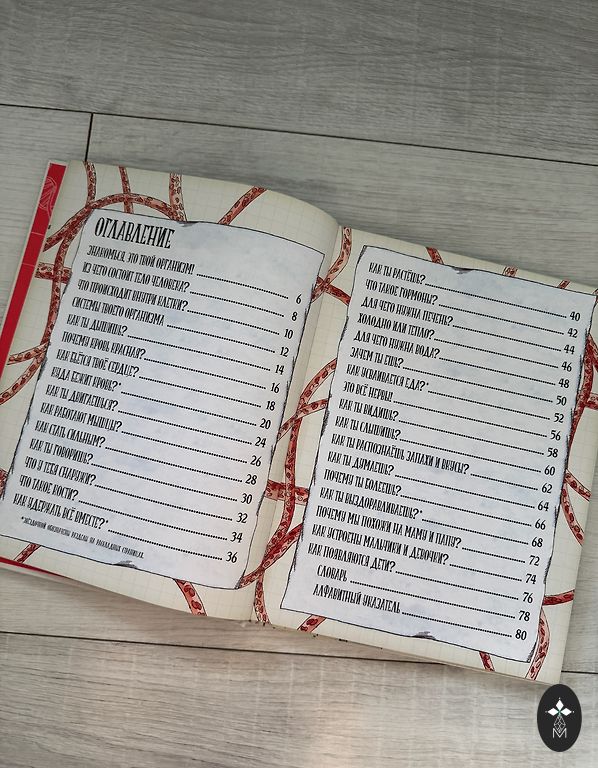 ОГЛАВЛЕНИЕ
ЗНАКОМЬСЯ, ЭТО ТВОЙ ОРГАНИЗМ! 6
ИЗ ЧЕГО СОСТОИТ ТЕЛО ЧЕЛОВЕКА? 8
ЧТО ПРОИСХОДИТ ВНУТРИ КЛЕТКИ? 10
СИСТЕМЫ ТВОЕГО ОРГАНИЗМА 12
КАК ТЫ ДЫШИШЬ? 14
ПОЧЕМУ КРОВЬ КРАСНАЯ? 16
КАК БЬЁТСЯ ТВОЁ СЕРДЦЕ? 18
КУДА БЕЖИТ КРОВЬ?* 20
КАК ТЫ ДВИГАЕШЬСЯ? 24
КАК РАБОТАЮТ МЫШЦЫ? 26
КАК СТАТЬ СИЛЬНЫМ? 28
КАК ТЫ ГОВОРИШЬ? 30
ЧТО У ТЕБЯ СНАРУЖИ? 32
ЧТО ТАКОЕ КОСТИ? 34
КАК УДЕРЖАТЬ ВСЁ ВМЕСТЕ?* 36
*ЗВЁЗДОЧКОЙ ОБОЗНАЧЕНЫ РАЗДЕЛЫ НА РАСКЛАДНЫХ СТРАНИЦАХ.
КАК ТЫ РАСТЁШЬ? 40
ЧТО ТАКОЕ ГОРМОНЫ? 42
ДЛЯ ЧЕГО НУЖНА ПЕЧЕНЬ? 44
ХОЛОДНО ИЛИ ТЕПЛО? 46
ДЛЯ ЧЕГО НУЖНА ВОДА? 48
ЗАЧЕМ ТЫ ЕШЬ? 50
КАК УСВАИВАЕТСЯ ЕДА?* 52
ЭТО ВСЁ НЕРВЫ! 56
КАК ТЫ ВИДИШЬ? 58
КАК ТЫ СЛЫШИШЬ? 60
КАК ТЫ РАСПОЗНАЁШЬ ЗАПАХИ И ВКУСЫ? 62
КАК ТЫ ДУМАЕШЬ? 64
ПОЧЕМУ ТЫ БОЛЕЕШЬ? 66
КАК ТЫ ВЫЗДОРАВЛИВАЕШЬ?* 68
ПОЧЕМУ МЫ ПОХОЖИ НА МАМУ И ПАПУ? 72
КАК УСТРОЕНЫ МАЛЬЧИКИ И ДЕВОЧКИ? 74
КАК ПОЯВЛЯЮТСЯ ДЕТИ? 76
СЛОВАРЬ 78
АЛФАВИТНЫЙ УКАЗАТЕЛЬ 80
М